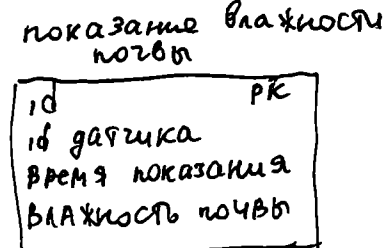 показание влажности
почвы
id PK
id датчика
время показания
влажность почвы